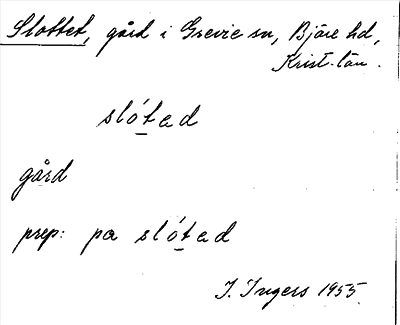 Slottet, gård i Grevie sn, Bjäre hd,
Krist. län.
slót̲ad
gård
prep: pa slót̲ad
I. Ingers 1955.